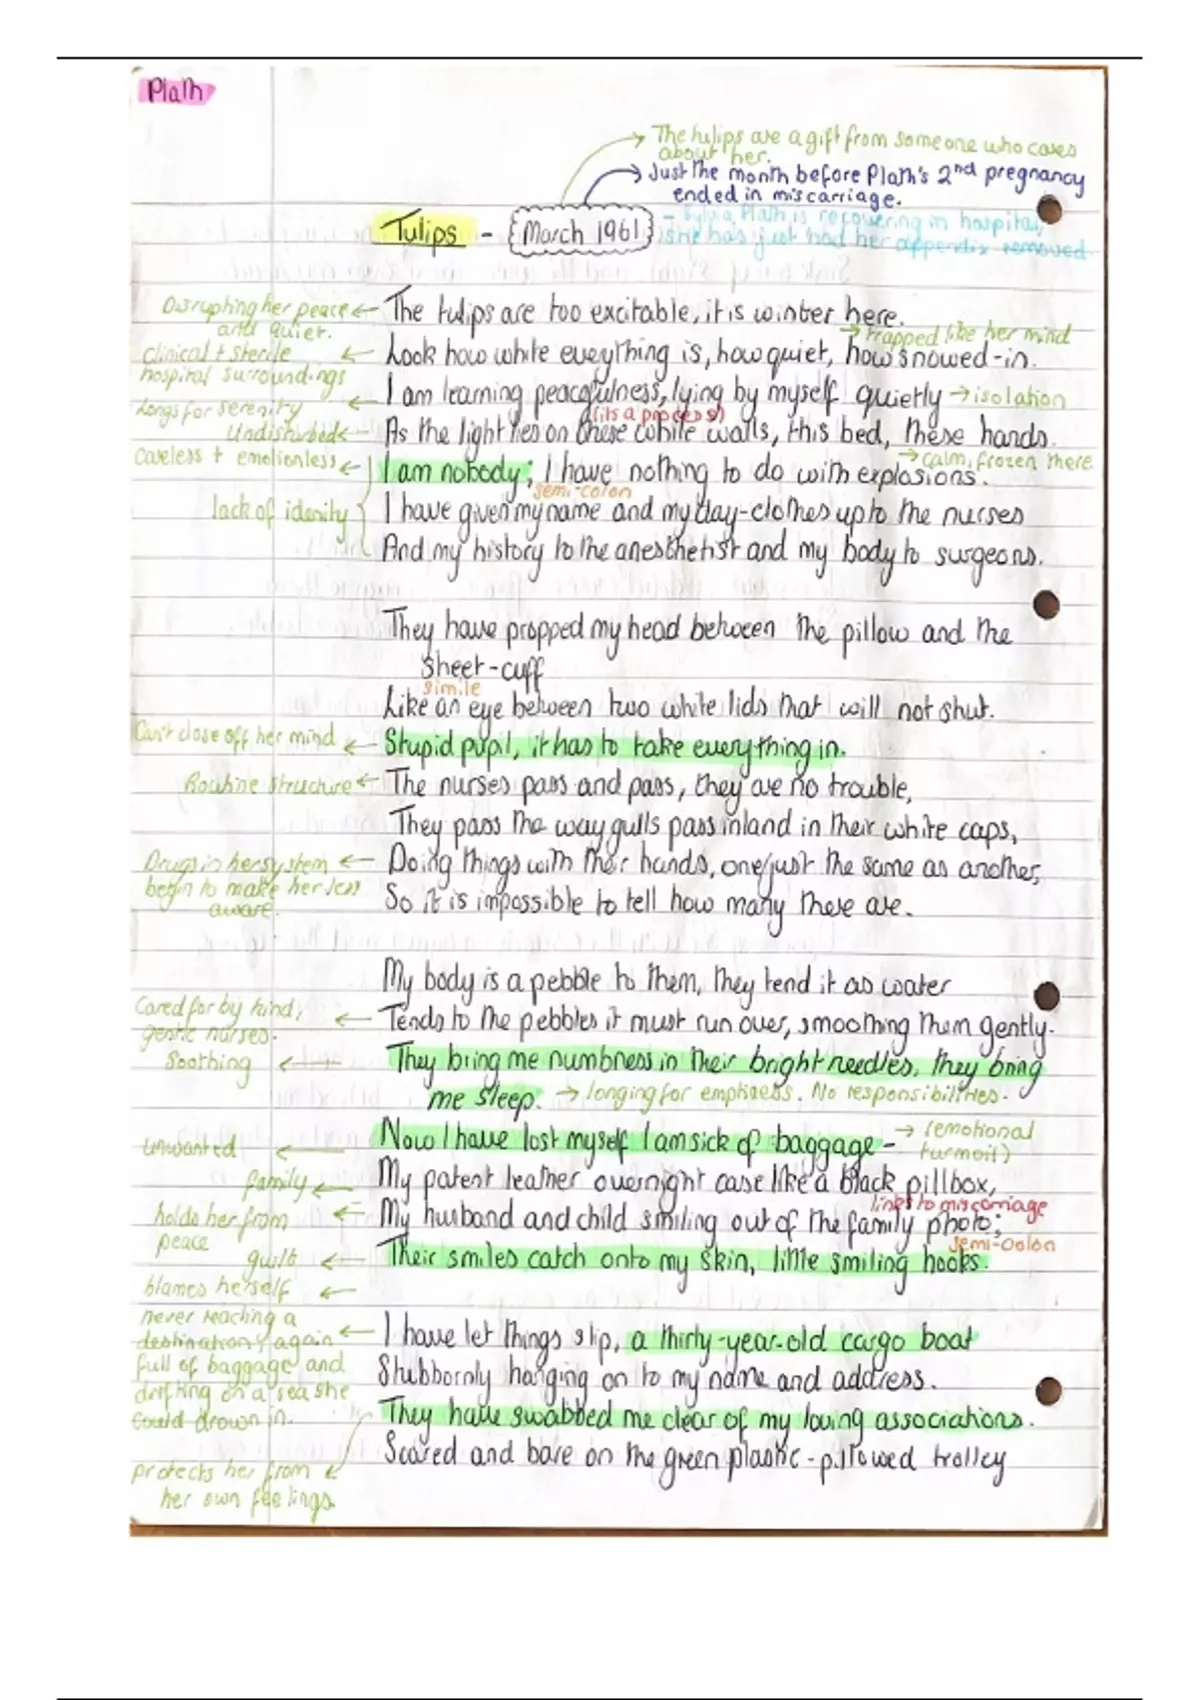 Plath
The tulips are a gift from someone who cares
about her.
Just the month before Plath's 2nd pregnancy
ended in miscarriage.
Tulips - March 1961
- Sylvia Plath is recovering in hospital,
she has just had her appendix removed
Disrupting her peace
and quiet.
The tulips are too excitable, it is winter here.
trapped like her mind
clinical + sterile
hospital surroundings
Look how white everything is, how quiet, how snowed-in.
I am learning peacefulness, lying by myself quietly
isolation
(its a process)
Longs for serenity
Undisturbed
As the light lies on these white walls, this bed, these hands.
calm, frozen there
careless + emotionless
I am nobody; I have nothing to do with explosions.
semi-colon
lack of idenity
I have given my name and my day-clothes up to the nurses
And my history to the anesthetist and my body to surgeons.
They have propped my head between the pillow and the
sheet-cuff
simile
Like an eye between two white lids that will not shut.
Can't close off her mind
Stupid pupil, it has to take everything in.
Routine structure
The nurses pass and pass, they are no trouble,
They pass the way gulls pass inland in their white caps,
Drugs in her system
begin to make her less
aware.
Doing things with their hands, one just the same as another,
So it is impossible to tell how many there are.
My body is a pebble to them, they tend it as water
Cared for by kind,
gentle nurses.
Tends to the pebbles it must run over, smoothing them gently.
Soothing
They bring me numbness in their bright needles, they bring
me sleep.
longing for emptiness. No responsibilities.
unwanted
Now I have lost myself I am sick of baggage -
(emotional
turmoil)
family
My patent leather overnight case like a black pillbox,
links to miscarriage
holds her from
peace
My husband and child smiling out of the family photo;
semi-colon
guilt
Their smiles catch onto my skin, little smiling hooks.
blames herself
never reaching a
destination, again
full of baggage and
drifting on a sea she
could drown in.
I have let things slip, a thirty-year-old cargo boat
Stubbornly hanging on to my name and address.
They have swabbed me clear of my loving associations.
protects her from
her own feelings.
Scared and bare on the green plastic-pillowed trolley